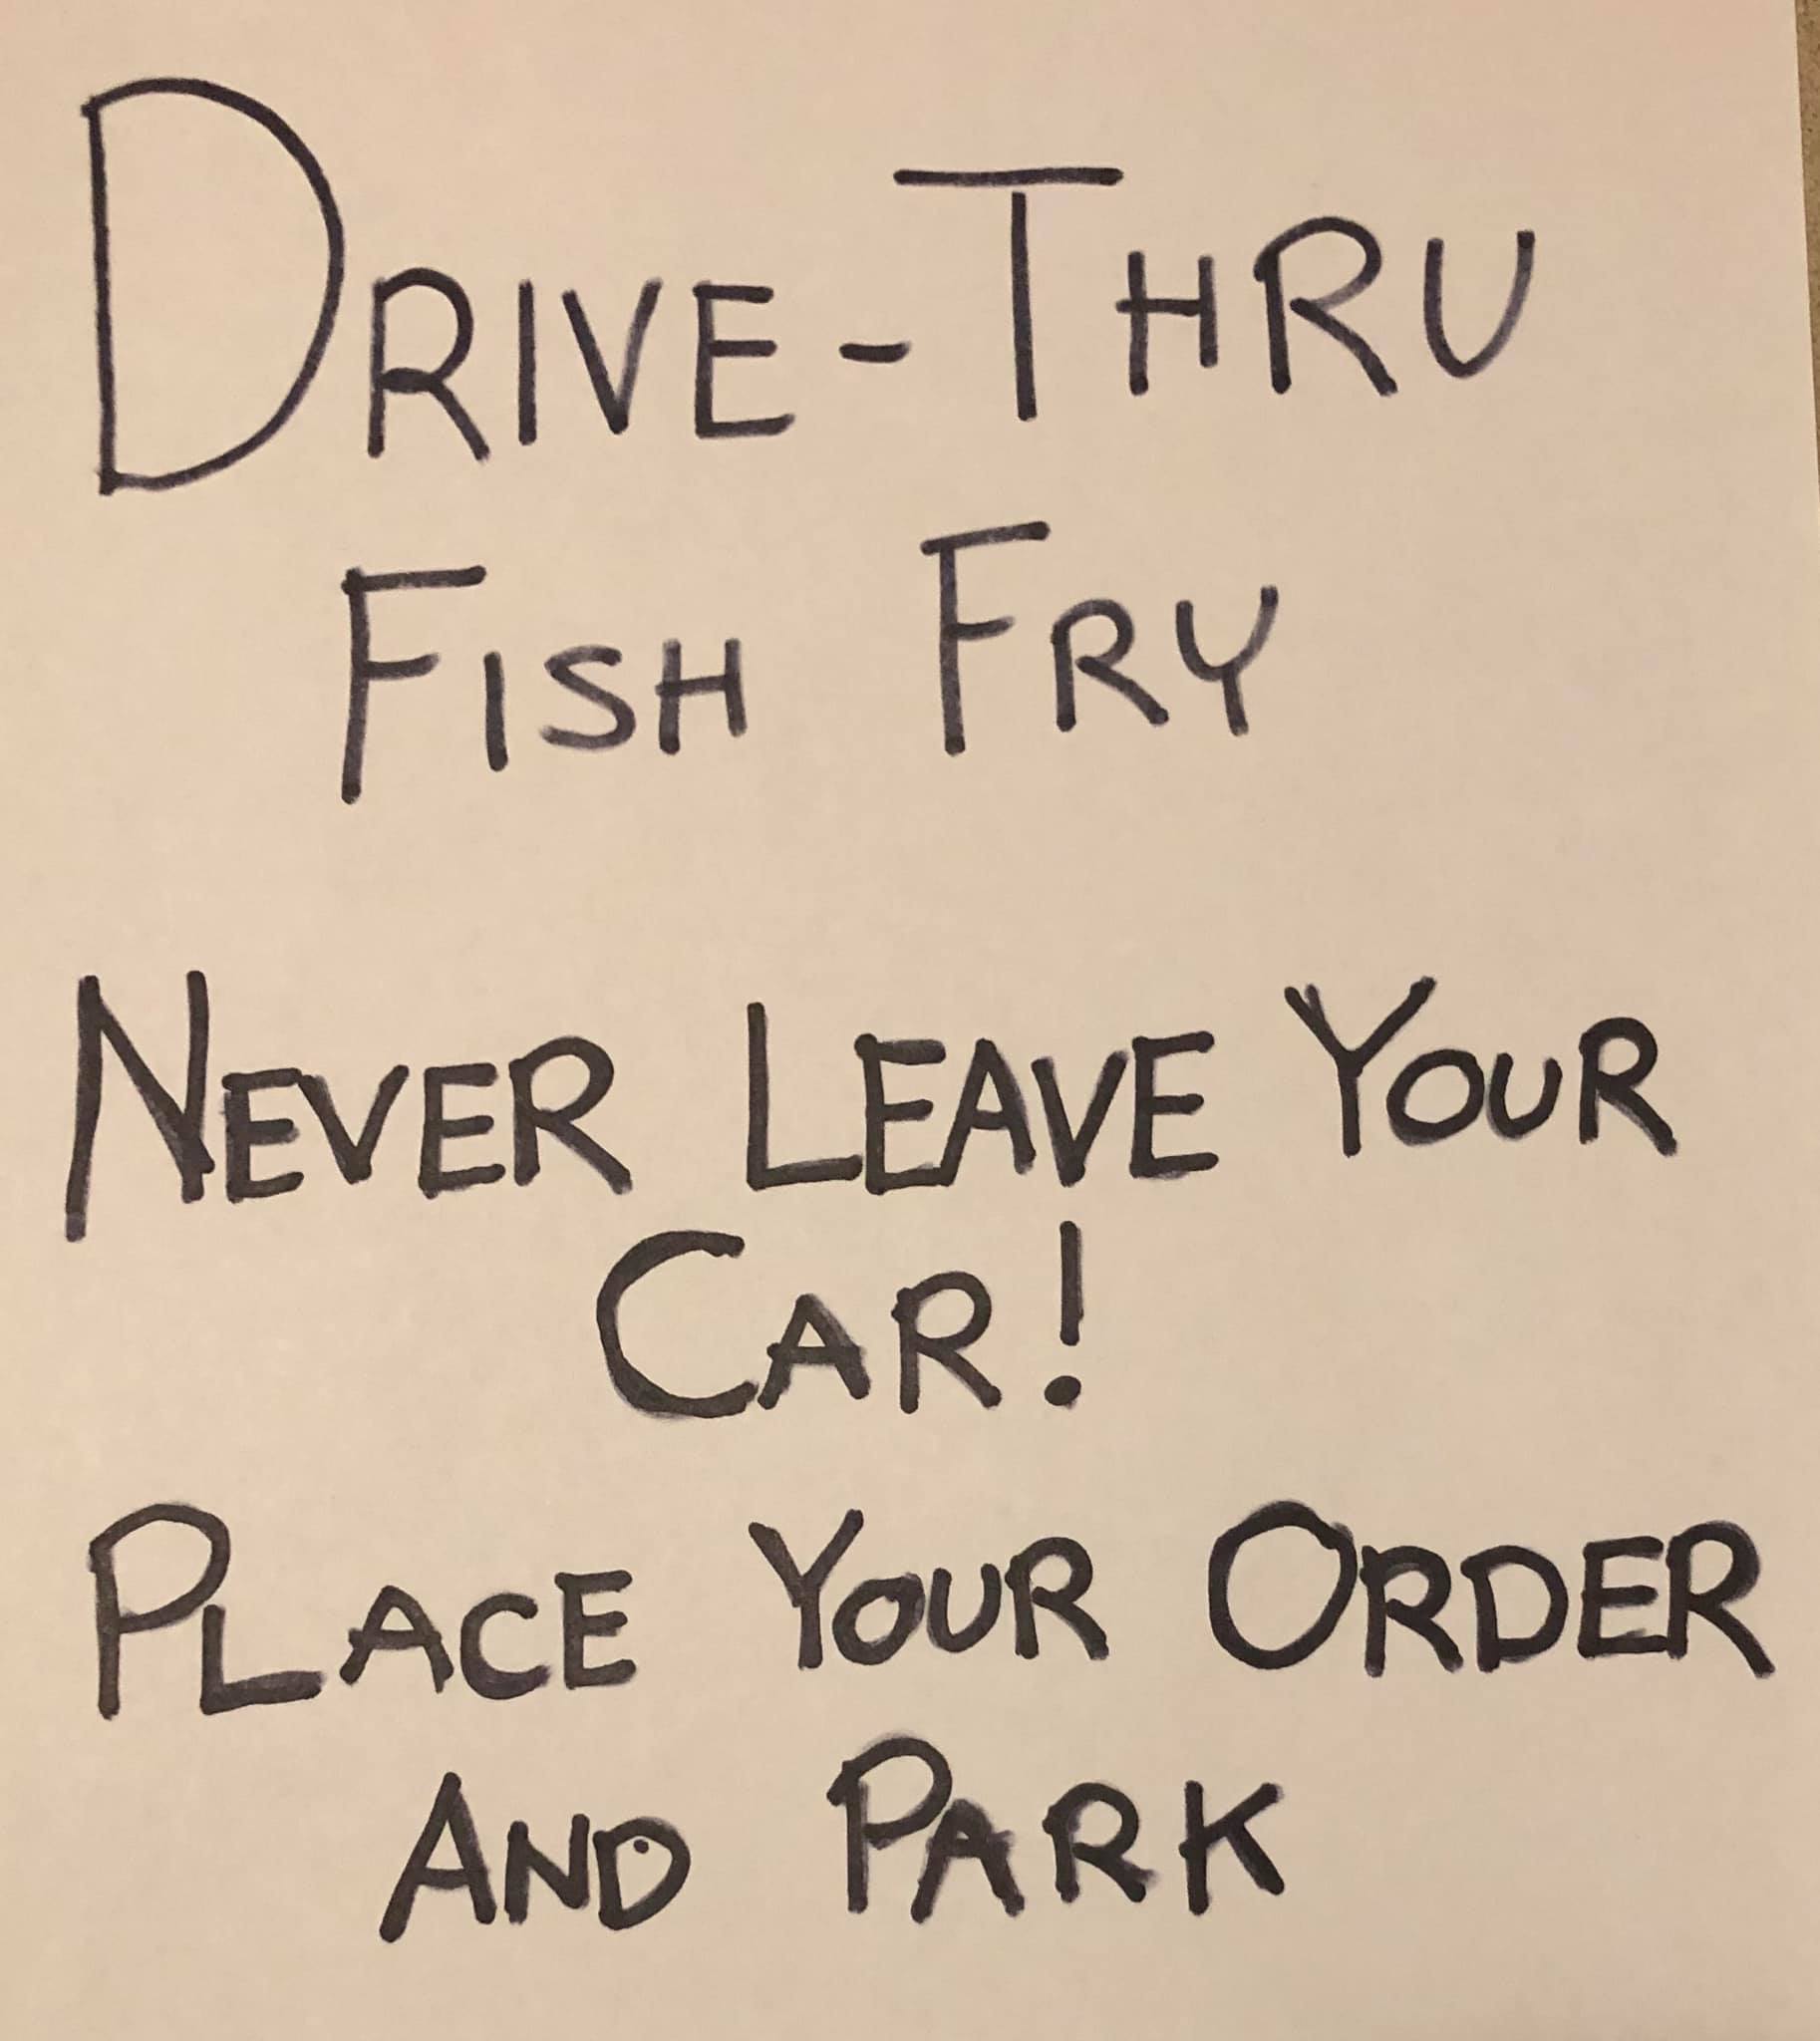 DRIVE-THRU
FISH FRY
NEVER LEAVE YOUR
CAR!
PLACE YOUR ORDER
AND PARK